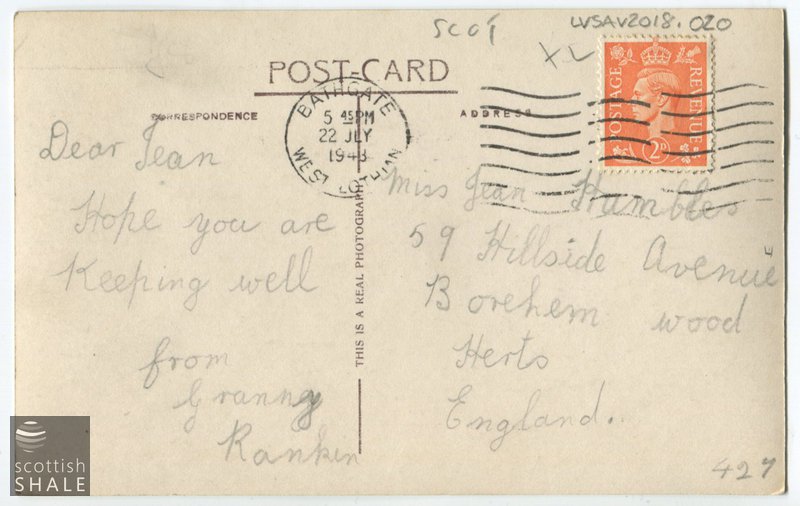 SCOT
LVSAV2018.020
POST-CARD
CORRESPONDENCE
ADDRESS
BATHGATE
5 45PM
22 JLY
1948
WEST LOTHIAN
POSTAGE
REVENUE
2D
THIS IS A REAL PHOTOGRAPH
Dear Jean
Hope you are
Keeping well
from
Granny
Ranken
Miss Jean Humbles
59 Hillside Avenue
E
Borehem wood
Herts
England.
427
scottish
SHALE